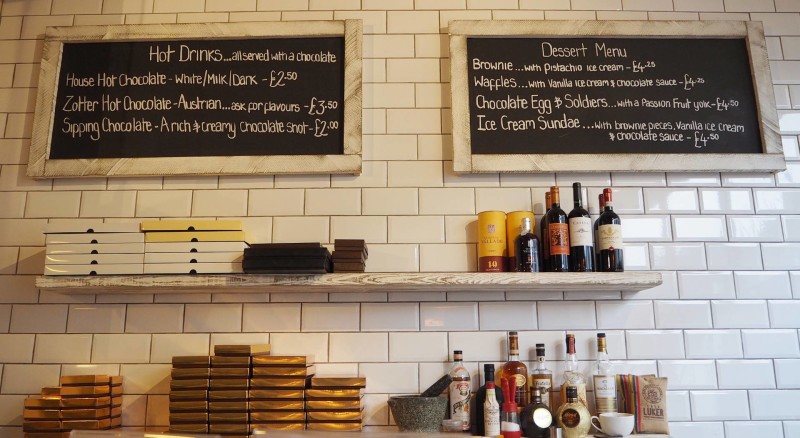 Hot Drinks...all served with a chocolate
House Hot Chocolate - White/Milk/Dark - £2.50
Zotter Hot Chocolate - Austrian...ask for flavours - £3.50
Sipping Chocolate - A rich & creamy chocolate shot - £2.00
Dessert Menu
Brownie...with Pistachio ice cream - £4.25
Waffles...with Vanilla ice cream & chocolate sauce - £4.25
Chocolate Egg & Soldiers...with a Passion Fruit yolk - £4.50
Ice Cream Sundae...with brownie pieces, Vanilla ice cream
& chocolate sauce - £4.50
10
LUKER